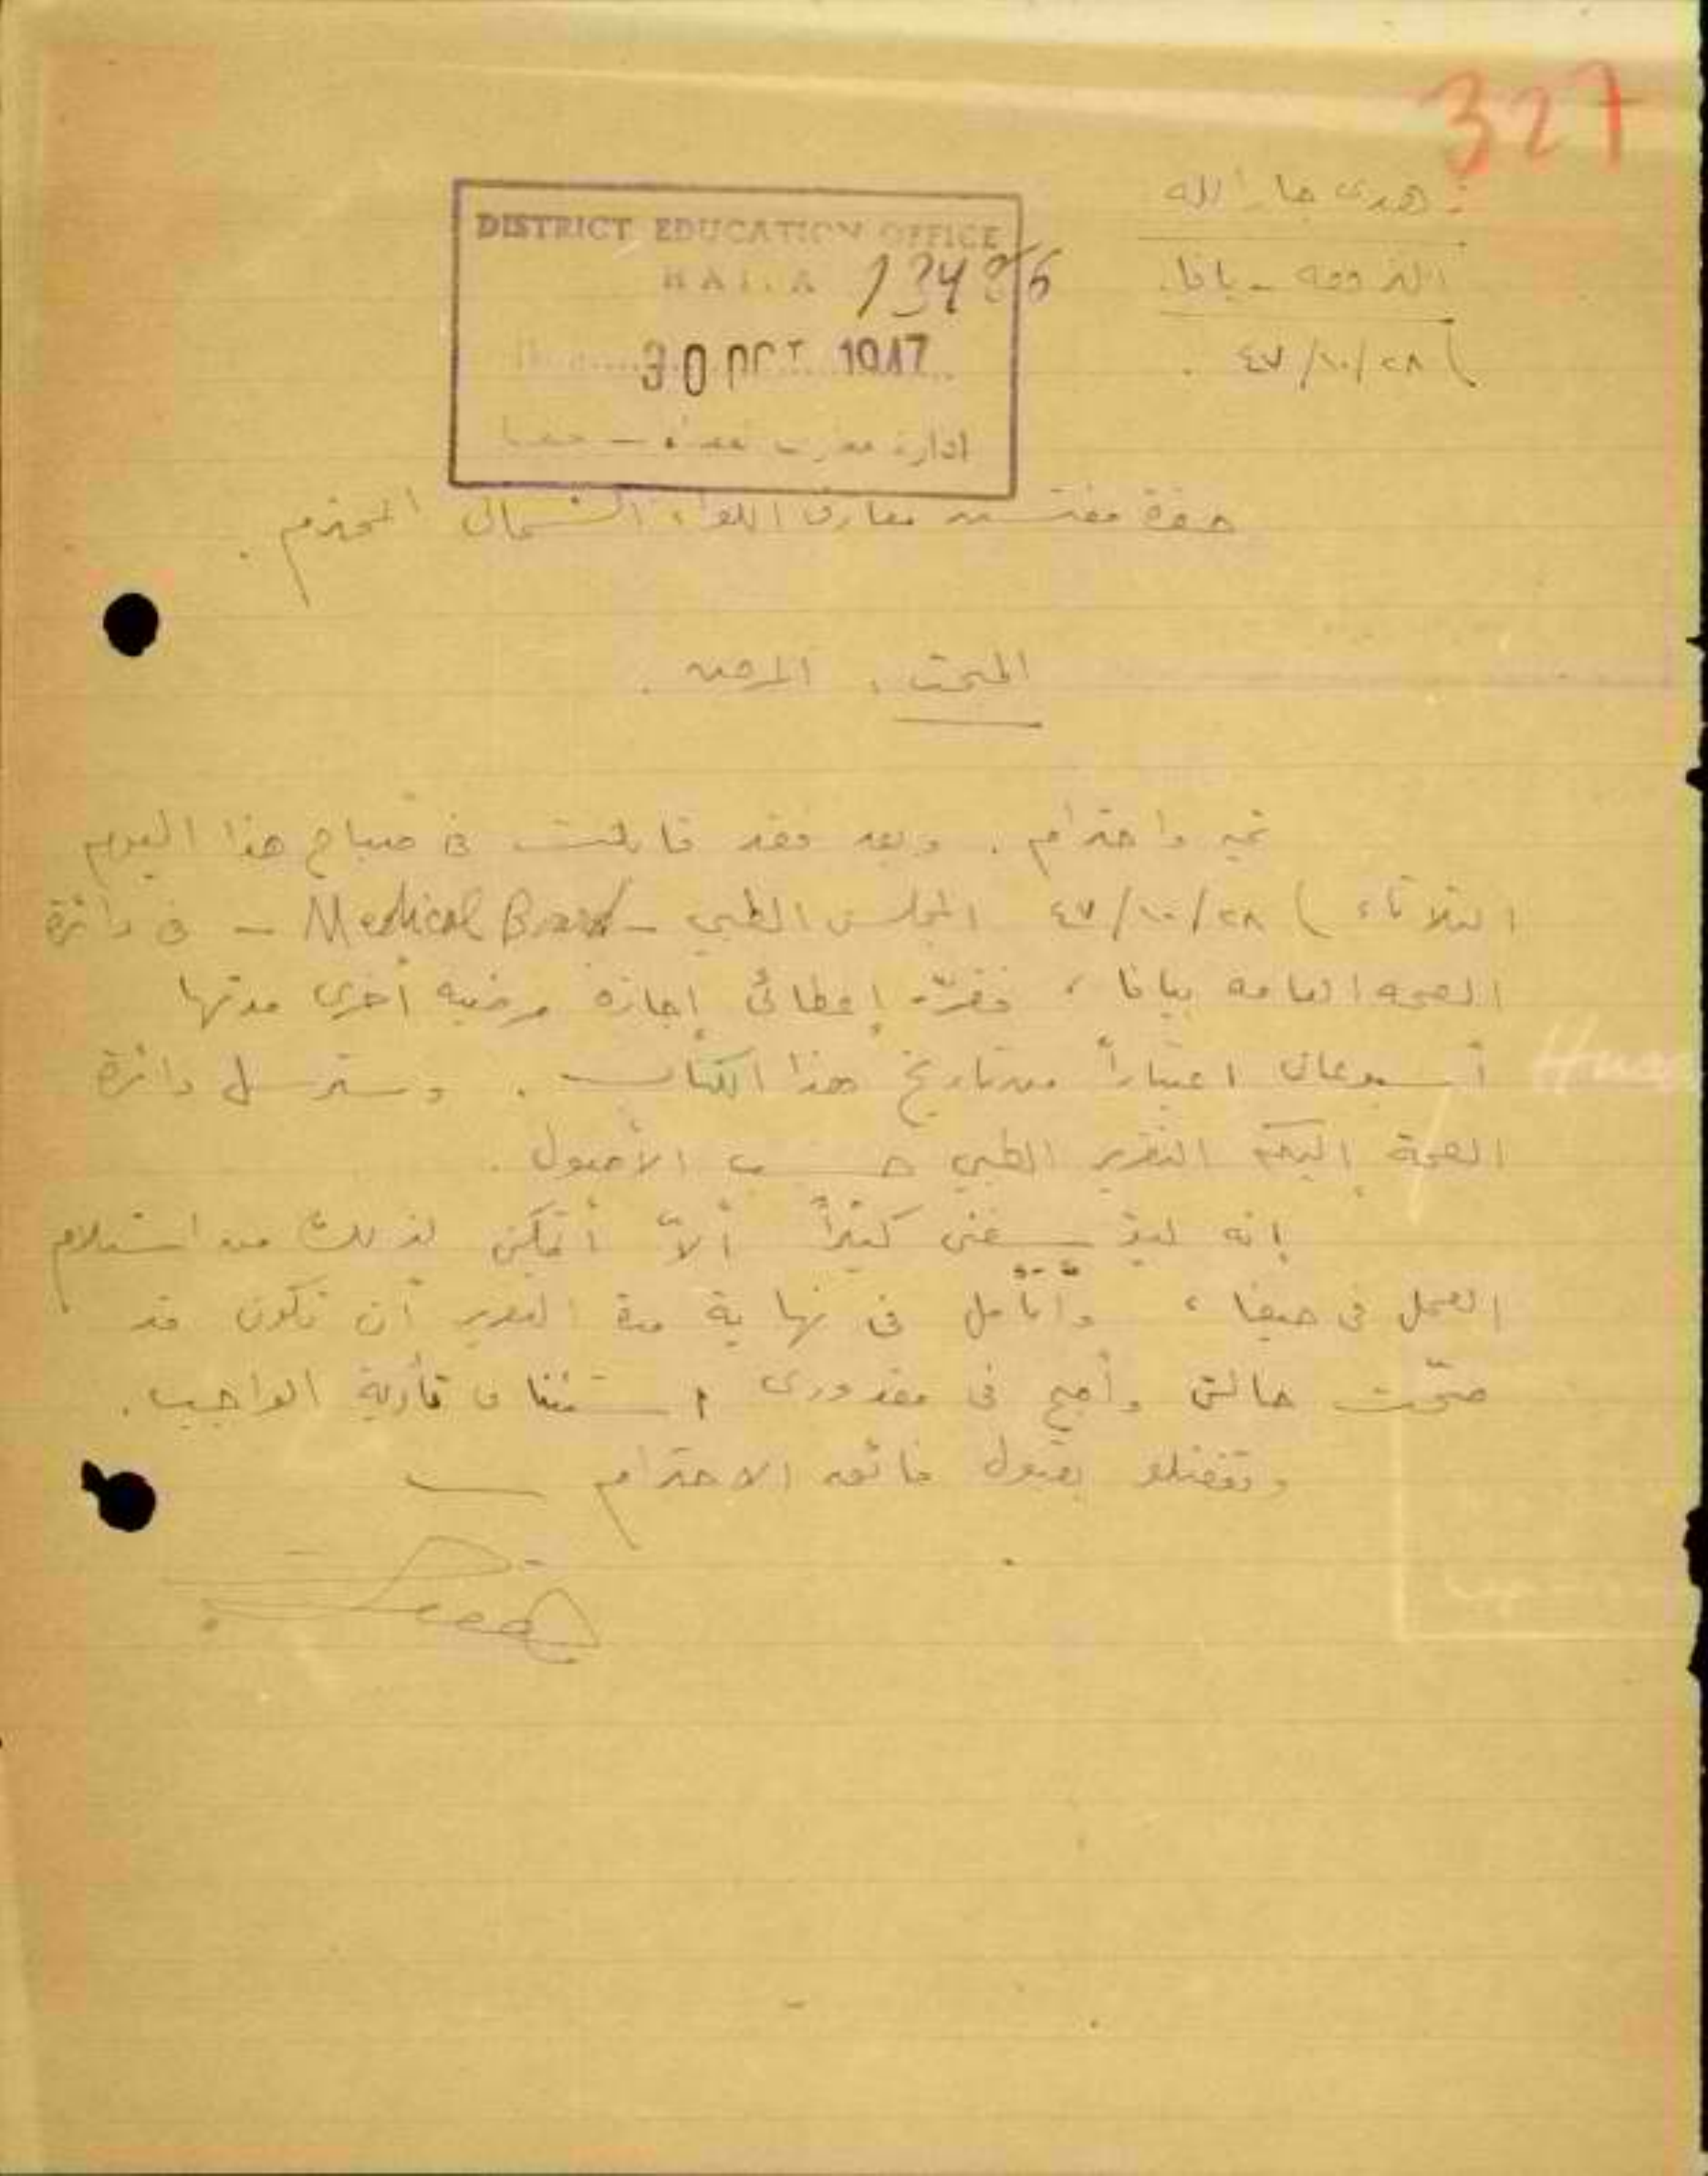 327
زهدي جار الله
النزهه - يافا.
٤٧/١٠/٢٨
DISTRICT EDUCATION OFFICE
HAIFA 13486
30 OCT 1947
ادارة معارف لواء - حيفا
حضرة مفتش معارف اللواء الشمالي المحترم.
المبحث، المرض.
تحية واحترام. وبعد فقد قابلت في صباح هذا اليوم
الثلاثاء ) ٤٧/١٠/٢٨ المجلس الطبي - Medical Board - في دائرة
الصحه العامه بيافا، فقرّر إعطائي إجازه مرضيه أخرى مدتها
أسبوعان اعتباراً من تاريخ هذا الكتاب. وسترسل دائرة
الصحة إليكم التقرير الطبي حسب الأصول.
إنه ليؤسفني كثيراً ألاّ أتمكن لذلك من استلام
العمل في حيفا، وأتأمل في نهاية مدة التقرير أن تكون قد
صحّت حالتي وأصبح في مقدوري استئناف تأدية الواجب.
وتفضلو بقبول فائق الاحترام